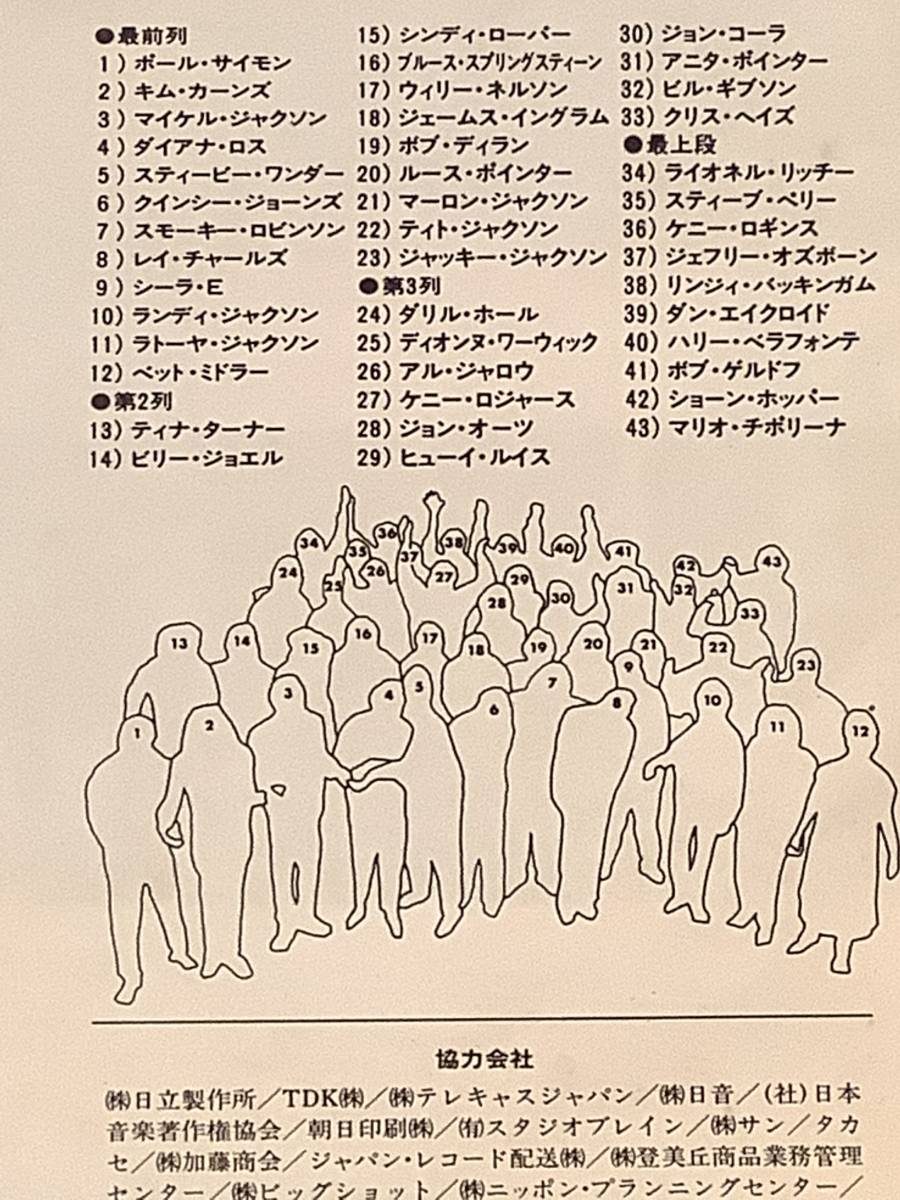 ●最前列
1）ポール・サイモン
2）キム・カーンズ
3）マイケル・ジャクソン
4）ダイアナ・ロス
5）スティービー・ワンダー
6）クインシー・ジョーンズ
7）スモーキー・ロビンソン
8）レイ・チャールズ
9）シーラ・E
10）ランディ・ジャクソン
11）ラトーヤ・ジャクソン
12）ベット・ミドラー
●第2列
13）ティナ・ターナー
14）ビリー・ジョエル
15）シンディ・ローパー
16）ブルース・スプリングスティーン
17）ウィリー・ネルソン
18）ジェームス・イングラム
19）ボブ・ディラン
20）ルース・ポインター
21）マーロン・ジャクソン
22）ティト・ジャクソン
23）ジャッキー・ジャクソン
●第3列
24）ダリル・ホール
25）ディオンヌ・ワーウィック
26）アル・ジャロウ
27）ケニー・ロジャース
28）ジョン・オーツ
29）ヒューイ・ルイス
30）ジョン・コーラ
31）アニタ・ポインター
32）ビル・ギブソン
33）クリス・ヘイズ
●最上段
34）ライオネル・リッチー
35）スティーブ・ペリー
36）ケニー・ロギンス
37）ジェフリー・オズボーン
38）リンジィ・バッキンガム
39）ダン・エイクロイド
40）ハリー・ベラフォンテ
41）ボブ・ゲルドフ
42）ショーン・ホッパー
43）マリオ・チポリーナ
34 35 36 37 38 39 40 41 42 43
24 25 26 27 28 29 30 31 32 33
13 14 15 16 17 18 19 20 21 22 23
1 2 3 4 5 6 7 8 9 10 11 12
協力会社
㈱日立製作所／TDK㈱／㈱テレキャスジャパン／㈱日音／(社)日本
音楽著作権協会／朝日印刷㈱／㈲スタジオブレイン／㈱サン／タカ
セ／㈱加藤商会／ジャパン・レコード配送㈱／㈱登美丘商品業務管理
センター／㈱ビッグショット／㈱ニッポン・プランニングセンター／